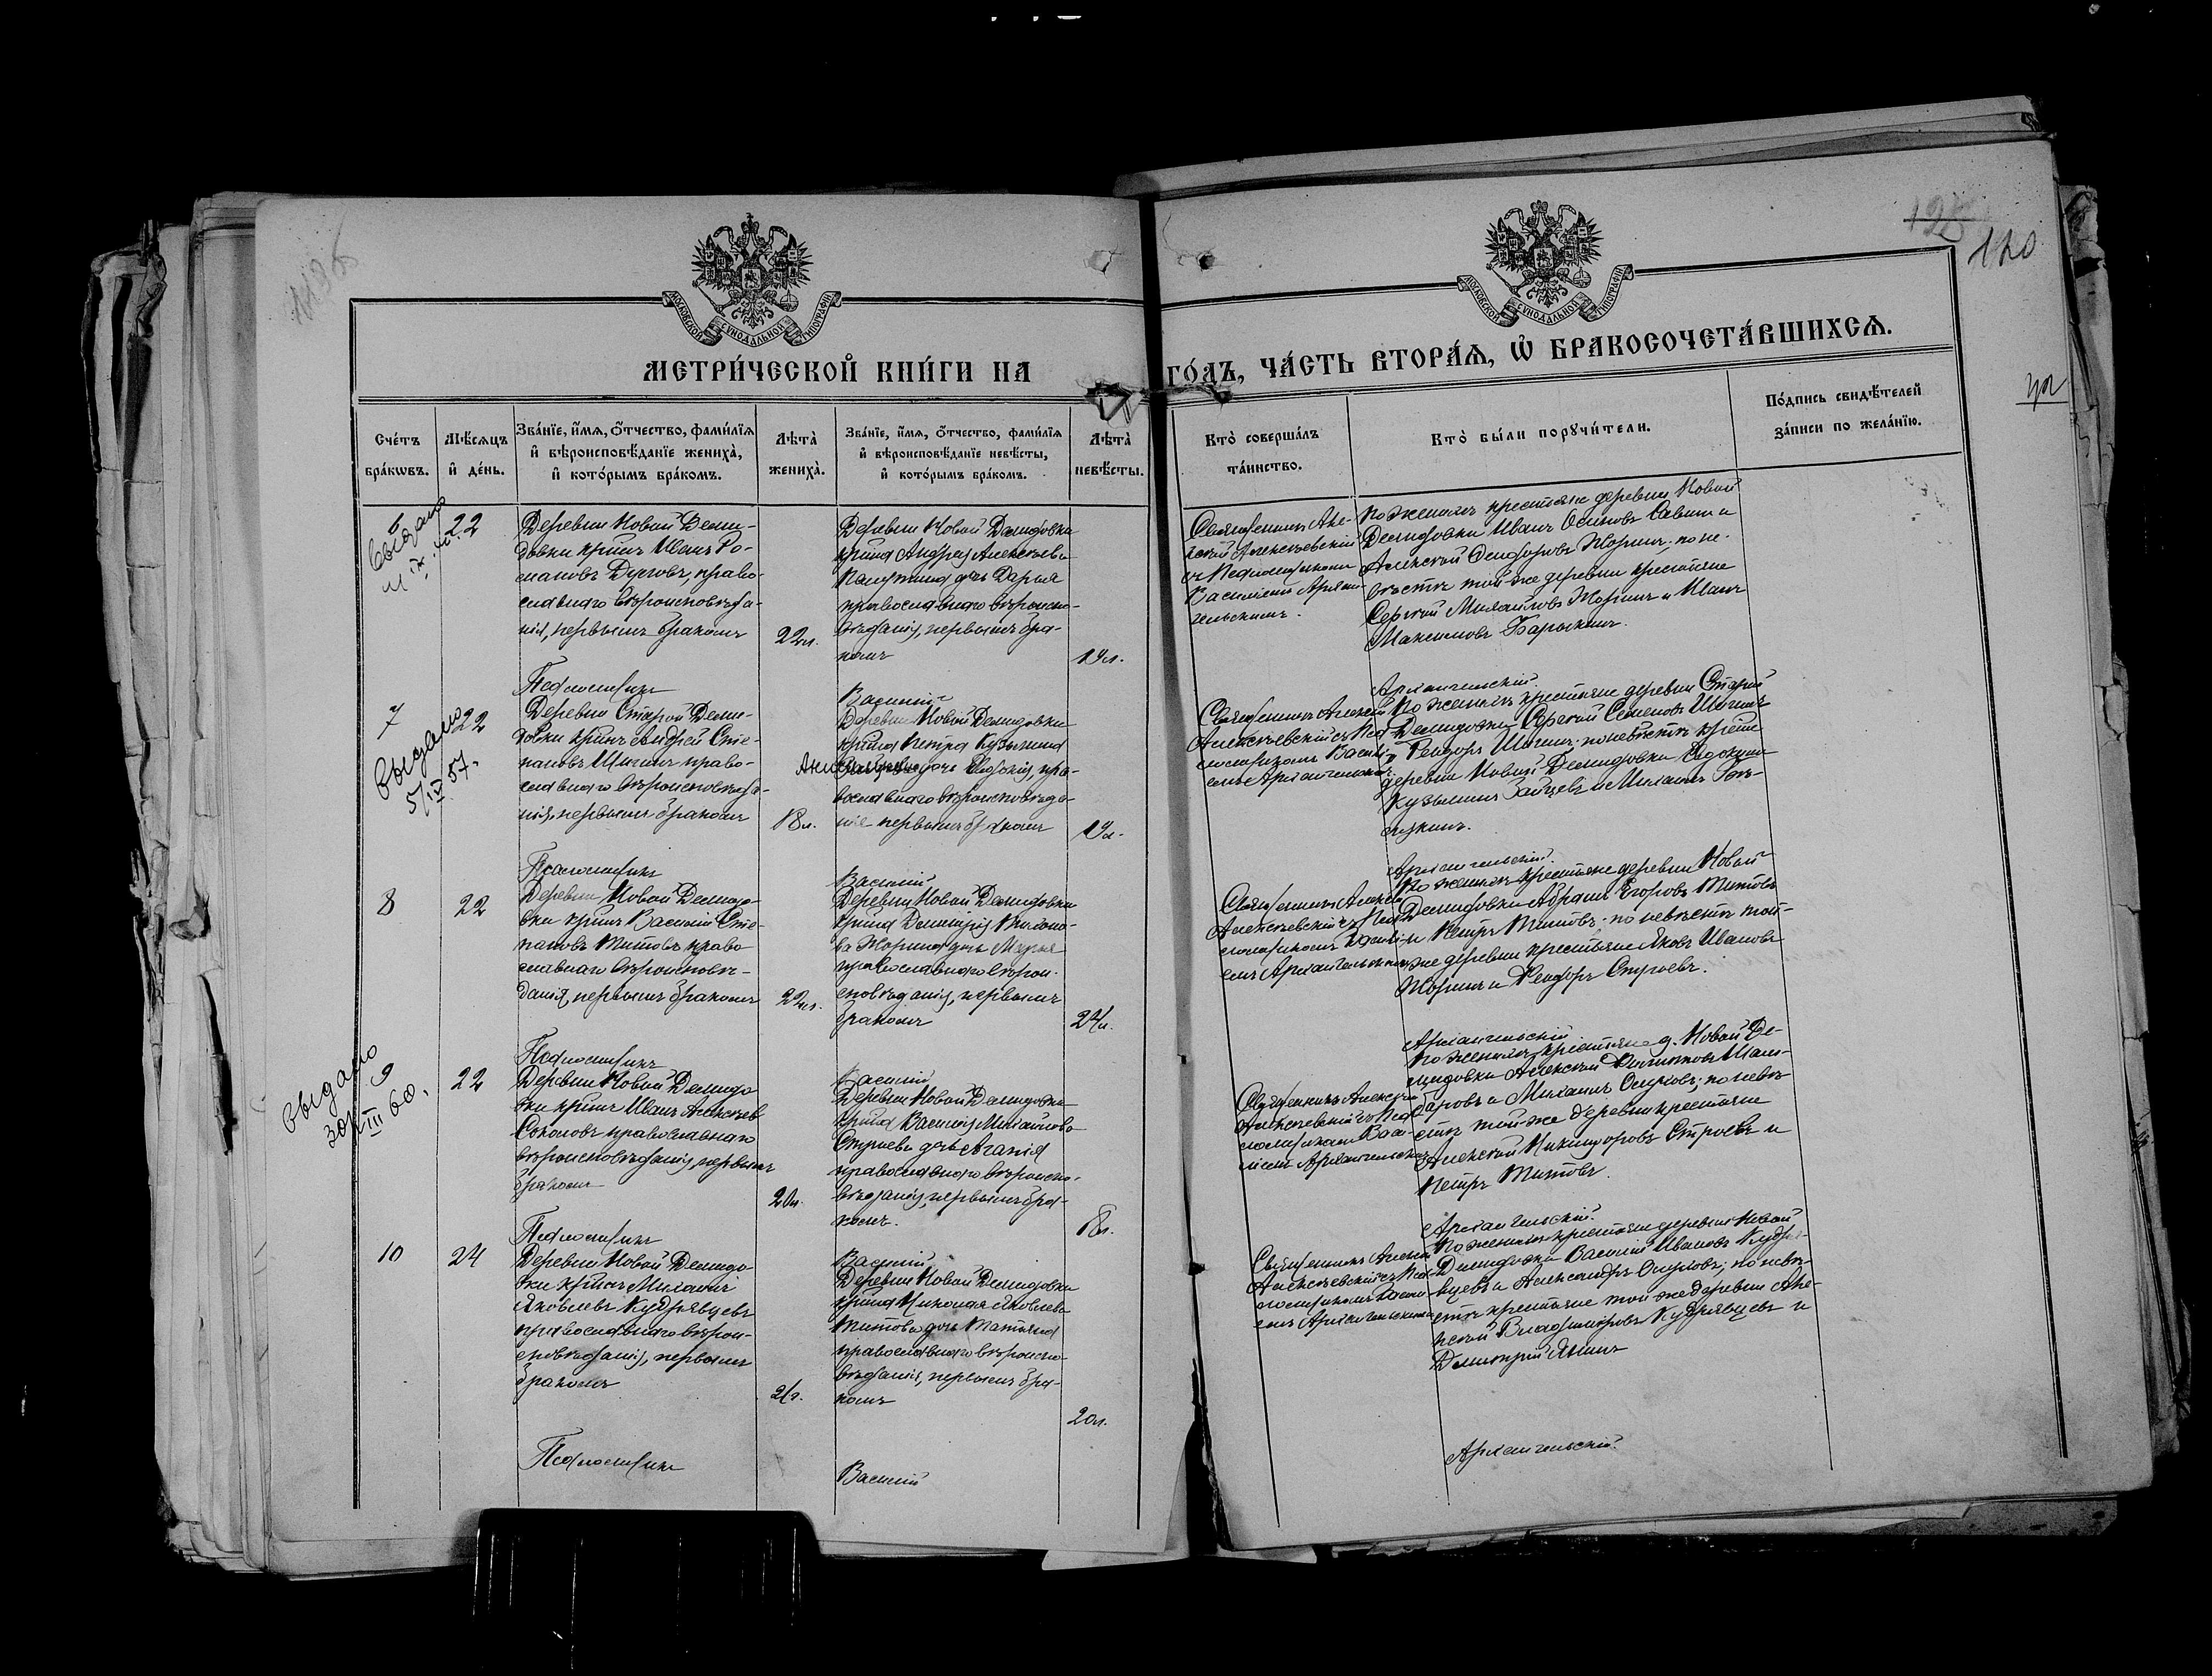 120
МОСКОВСКОЙ СѴНОДАЛЬНОЙ ТИПОГРАФІИ
МОСКОВСКОЙ СѴНОДАЛЬНОЙ ТИПОГРАФІИ
МЕТРИ́ЧЕСКОЙ КНИ́ГИ НА ГО́ДЪ, ЧА́СТЬ ВТОРА́Ѧ, Ѽ БРАКОСОЧЕТА́ВШИХСѦ.
Сче́тъ бра́кѡвъ.
Мѣ́сѧцъ и҆ де́нь.
Зва́нїе, и҆́мѧ, ѻ҆́тчество, фами́лїѧ и҆ вѣроисповѣ́данїе жениха̀, и҆ кото́рымъ бра́комъ.
Лѣта̀ жениха̀.
Зва́нїе, и҆́мѧ, ѻ҆́тчество, фами́лїѧ и҆ вѣроисповѣ́данїе невѣ́сты, и҆ кото́рымъ бра́комъ.
Лѣта̀ невѣ́сты.
Кто̀ соверша́лъ та́инство.
Кто̀ бы́ли порꙋчи́тели.
По́дпись свидѣ́телей за́писи по жела́нїю.
6
выдано
22
Деревни Новой Деми-
довки кр-нъ Иванъ Ро-
мановъ право-
славнаго вѣроисповѣда-
нія, первымъ бракомъ
22 л.
Деревни Новой Демидовки
кр-на Андрея Алексѣева
дочь Дарья
православнаго вѣроиспо-
вѣданія, первымъ бра-
комъ
19 л.
Священникъ Але-
ксѣй Алексѣевскій
съ Псаломщикомъ
Василіемъ Архан-
гельскимъ.
По женихѣ крестьяне деревни Новой
Демидовки Иванъ Осиповъ Савинъ и
Алексѣй Ѳеодоровъ Жоринъ; по не-
вѣстѣ той-же деревни крестьяне
Сергѣй Михайловъ Жоринъ и Иванъ
Максимовъ Барыкинъ.
Псаломщикъ Василій Архангельскій.
7
выдано
5/IV 57.
22
Деревни Старой Деми-
довки кр-нъ Андрей Сте-
пановъ Шигинъ право-
славнаго вѣроисповѣда-
нія, первымъ бракомъ
18 л.
Деревни Новой Демидовки
кр-на Петра Кузьмина
дочь Евдокія, пра-
вославнаго вѣроисповѣда-
нія первымъ бракомъ
19 л.
Священникъ Алексѣй
Алексѣевскій съ Пса-
ломщикомъ Васи-
ліемъ Архангельскимъ
По женихѣ крестьяне деревни Старой
Демидовки Сергѣй Семеновъ Шигинъ
и Ѳеодоръ Шигинъ; по невѣстѣ крест.
деревни Новой Демидовки Евдокимъ
Кузьминъ Зайцевъ и Михаилъ
Псаломщикъ Василій Архангельскій.
8
22
Деревни Новой Демидо-
вки кр-нъ Василій Сте-
пановъ Титовъ право-
славнаго вѣроисповѣ-
данія, первымъ бракомъ
22 л.
Деревни Новой Демидовки
кр-на Димитрія
Жорина дочь Марья
православнаго вѣрои-
сповѣданія, первымъ
бракомъ
24 л.
Священникъ Алексѣй
Алексѣевскій съ Пса-
ломщикомъ Васили-
емъ Архангельскимъ
По женихѣ крестьяне деревни Новой
Демидовки Абрамъ Егоровъ Титовъ
и Петръ Титовъ; по невѣстѣ той-
же деревни крестьяне Яковъ Ивановъ
Жоринъ и Ѳеодоръ Строевъ.
Псаломщикъ Василій Архангельскій
выдано
9
III 60.
22
Деревни Новой Демидо-
вки кр-нъ Иванъ Алексѣевъ
Соколовъ православнаго
вѣроисповѣданія, первымъ
бракомъ
20 л.
Деревни Новой Демидовки
кр-на Василія Михайлова
Строева дочь Агапія
православнаго вѣроиспо-
вѣданія, первымъ бра-
комъ.
18 л.
Священникъ Алексѣй
Алексѣевскій съ Пса-
ломщикомъ Васи-
ліемъ Архангельскимъ
По женихѣ крестьяне д. Новой Де-
мидовки Алексѣй
и Михаилъ по невѣ-
стѣ той-же деревни крестьяне
Алексѣй Никифоровъ Строевъ и
Петръ Титовъ.
Псаломщикъ Василій Архангельскій.
10
24
Деревни Новой Демидо-
вки кр-нъ Михаилъ
Яковлевъ Кудрявцевъ
православнаго вѣрои-
сповѣданія, первымъ
бракомъ
21 г.
Деревни Новой Демидовки
кр-на Николая Яковлева
Титова дочь Татьяна
православнаго вѣроиспо-
вѣданія, первымъ бра-
комъ
20 л.
Священникъ Алексѣй
Алексѣевскій съ Пса-
ломщикомъ Васили-
емъ Архангельскимъ
По женихѣ крестьяне деревни Новой
Демидовки Василій Ивановъ Кудря-
вцевъ и Александръ по невѣ-
стѣ крестьяне той же деревни Але-
ксѣй Владиміровъ Кудрявцевъ и
Димитрій
Псаломщикъ Василій Архангельскій.